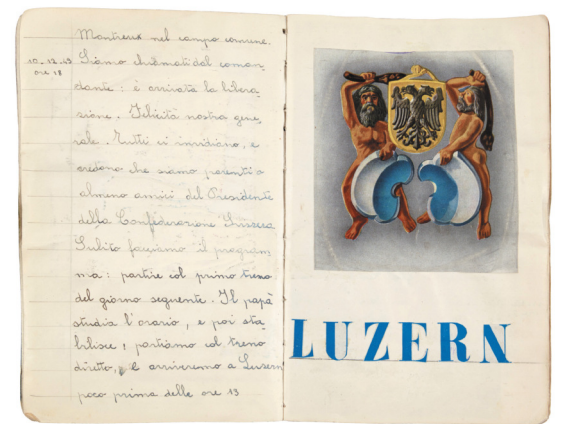 Montreux nel campo comune.
10.12.43 Siamo chiamati dal coman=
ore 18
dante: è arrivata la libera=
zione. Felicità nostra gene=
rale. Tutti ci invidiano, e
credono che siamo parenti o
almeno amici del Presidente
della Confederazione Svizzera
Subito facciamo il program=
ma: partire col primo treno
del giorno seguente. Il papà
studia l'orario, e poi sta=
bilisce: partiamo col treno
diretto, e arriveremo a Luzern
poco prima delle ore 13
LUZERN